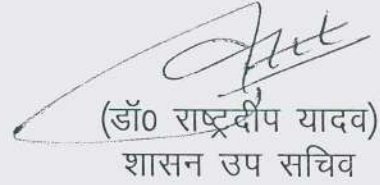 (डॉ0 राष्ट्रदीप यादव)
शासन उप सचिव